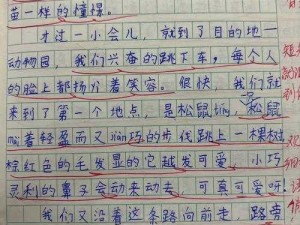 苗一样的憧憬。
才过一小会儿，就到了目的地一
动物园，我们兴奋的跳下车，每个人
的脸上都扬着笑容。很快，我们就
来到了第一个地点，是松鼠ting，松鼠
mai着轻盈而又jian巧的步伐跳上一棵树，
棕红色的毛发显的它越发可爱，小巧
灵利的鼻子会动来动去，可真可爱呀！
我们又沿着这条路向前走，路旁